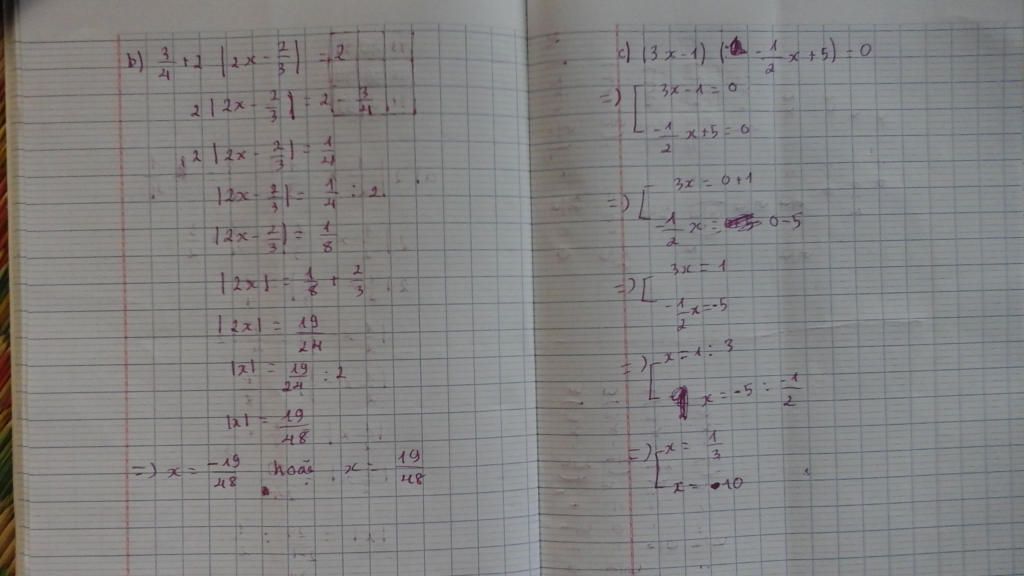 b) 3/4 + 2 |2x - 2/3| = 2
2 |2x - 2/3| = 2 - 3/4
2 |2x - 2/3| = 1/4
|2x - 2/3| = 1/4 : 2
|2x - 2/3| = 1/8
|2x| = 1/8 + 2/3
|2x| = 19/24
|x| = 19/24 : 2
|x| = 19/48
=) x = -19/48 hoặc x = 19/48
c) (3x-1) (-1/2 x + 5) = 0
=) [ 3x - 1 = 0
-1/2 x + 5 = 0
=) [ 3x = 0 + 1
-1/2 x = 0 - 5
=) [ 3x = 1
-1/2 x = -5
=) [ x = 1 : 3
x = -5 : -1/2
=) [ x = 1/3
x = 10